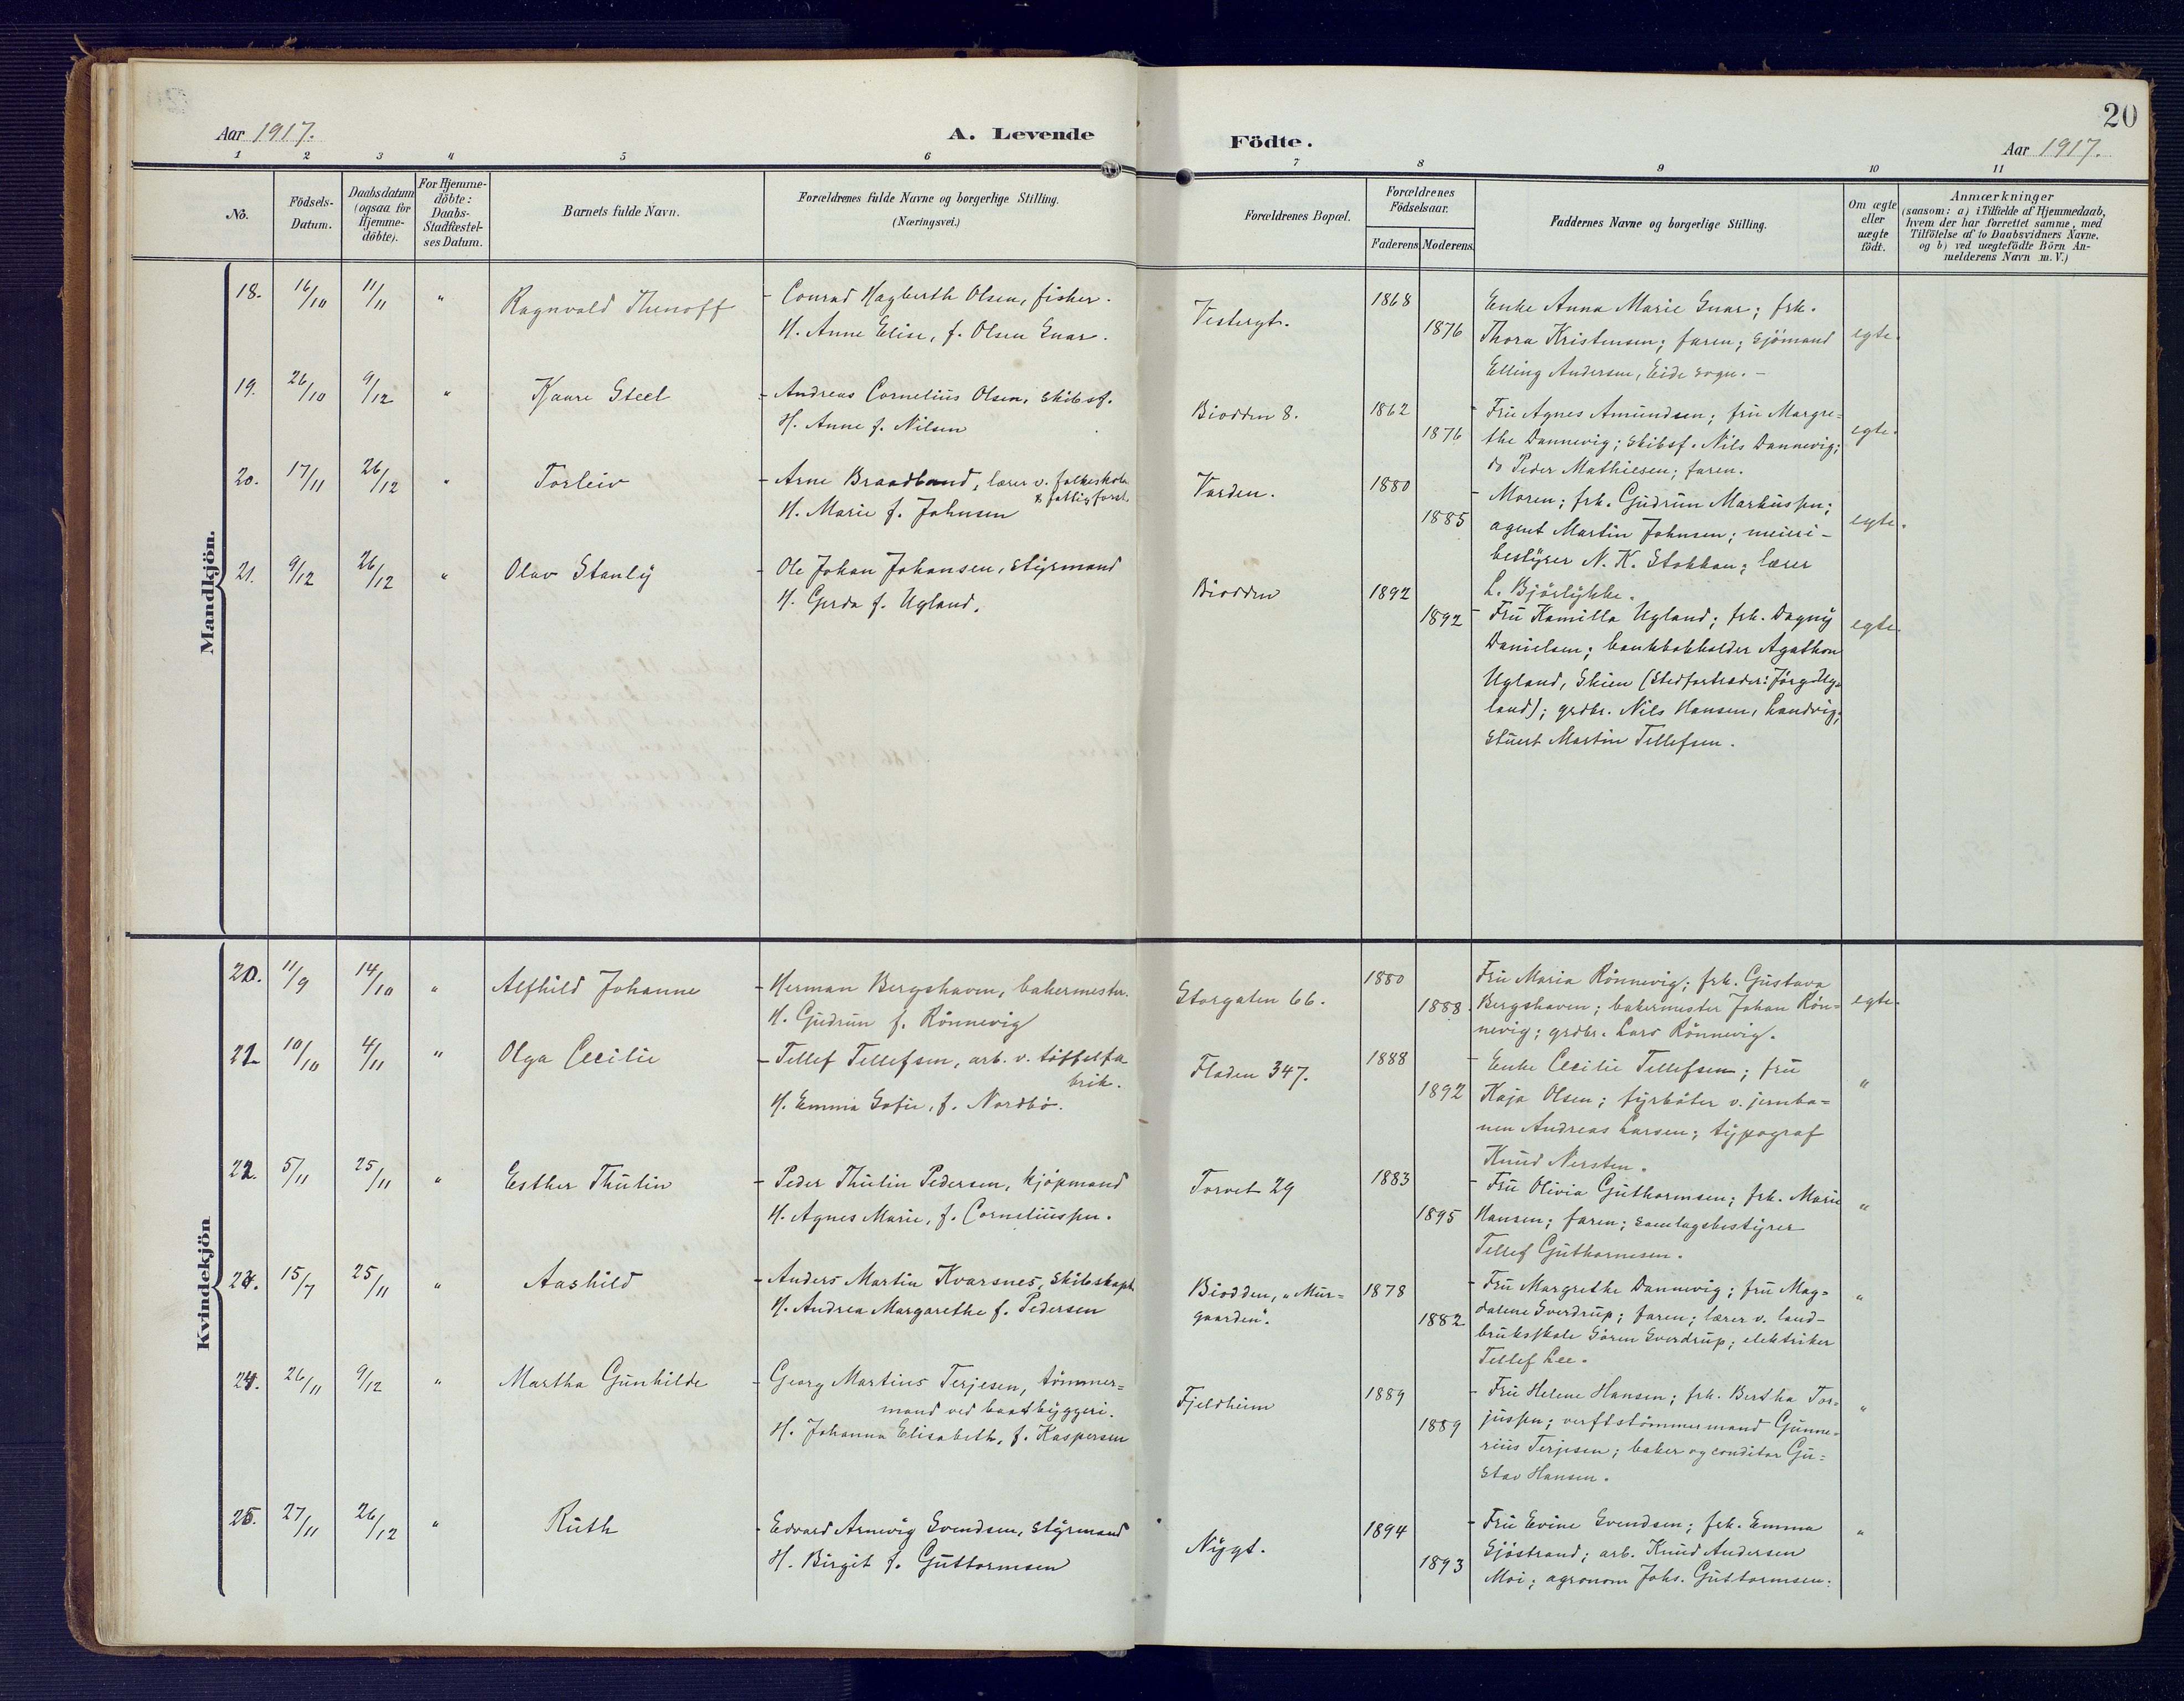 20
Aar 1917.
A. Levende
Födte.
Aar 1917.
1 2 3 4 5 6 7 8 9 10 11
No.
Födsels-
Datum.
Daabsdatum
(ogsaa for
Hjemme-
döbte).
For Hjemme-
döbte:
Daabs-
Stadfæstel-
ses Datum.
Barnets fulde Navn.
Forældrenes fulde Navne og borgerlige Stilling.
(Næringsvei.)
Forældrenes Bopæl.
Forældrenes
Födselsaar.
Faderens Moderens
Faddernes Navne og borgerlige Stilling.
Om ægte
eller
uægte
födt.
Anmærkninger
(saasom: a) i Tilfælde af Hjemmedaab,
hvem der har forrettet samme, med
Tilföielse af to Daabsvidners Navne,
og b) ved uægtefödte Börn An-
melderens Navn m. V.)
Mandkjön.
18. 16/10 11/11 "
Ragnvald Thenoff
- Conrad Hagberth Olsen, fisher.
H. Anne Elise, f. Olsen Enar.
Vestergt.
1868
1876
Enke Anna Marie Enar; frk.
Thora Kristensen; faren; sjömand
Elling Andersen, Eide sogn. -
egte.
19. 26/10 9/12 "
Kaare Steel
- Andreas Cornelius Olsen, skibsf.
H. Anne f. Nilsen
Biodden 8.
1862
1876
- Fru Agnes Amundsen; fru Margre=
the Dannevig; skibsf. Nils Dannevig;
do Peder Mathiesen; faren.
egte.
20. 17/11 26/12 "
Torleiv
- Arne Braadland, lærer v. folkeskole
& fattigforst.
H. Marie f. Johnsen
Varden.
1880
1885
- Moren; frk. Gudrun Markussen;
agent Martin Johnsen; meieri-
bestyrer N. K. Stokkan; lærer
L. Bjorlykke.
egte.
21. 9/12 26/12 "
Olav Stanly
- Ole Johan Johansen, styrmand
H. Gerda f. Ugland.
Biodden
1892
1892
- Fru Kamilla Ugland; frk. Dagny
Danielsen; bankbokholder Agathon
Ugland, Skien (Stedfortræder: Jörg. Ug=
land); grdbr. Nils Hansen, Landvig;
stuert Martin Tellefsen.
egte.
Kvindekjön
20. 11/9 14/10 "
Alfhild Johanne
- Herman Bergshaven, bakermester.
H. Gudrun f. Rönnevig
Storgaten 66.
1880
1888.
Fru Maria Rönnevig; frk. Gustava
Bergshaven; bakermester Johan Rön=
nevig; grdbr. Lars Rönnevig.
egte.
21. 10/10 4/11 "
Olga Cecilie
- Tellef Tellefsen, arb. v. töffelfa
brik.
H. Emma Sofie, f. Nordbö.
Fladen 347.
1888
1892
- Enke Cecilie Tellefsen; fru
Kaja Olsen; fyrböter v. jernba=
nen Andreas Larsen; typograf
Knud Nersten.
"
22. 5/11 25/11 "
Esther Thulin
- Peder Thulin Pedersen, kjöpmand
H. Agnes Marie, f. Corneliussen.
Torvet 29
1883
1895
- Fru Olivia Guthormsen; frk. Marie
Hansen; faren; samlagsbestyrer
Tellef Guthormsen.
"
23. 15/7 25/11 "
Aashild
- Anders Martin Kvarsnes, skibskapt.
H. Andrea Margarethe f. Pedersen
Biodden, „Mur-
gaarden".
1878
1882
- Fru Margrethe Dannevig; fru Mag=
dalene Sverdrup; faren; lærer v. land-
bruksskole Sören Sverdrup; elektriker
Tellef Lee.
"
24. 26/11 9/12 "
Martha Gunhilde
- Georg Martius Terjesen, tömmer=
mand ved baatbyggeri.
H. Johanna Elisabeth, f. Kaspersen
Fjeldheim
1889
1889
- Fru Helene Hansen; frk. Bertha Tor=
jussen; verftstömmermand Gunne=
rius Terjesen; baker og conditor Gu=
stav Hansen.
"
25. 27/11 26/12 "
Ruth
- Edvard Arnevig Svendsen, styrmand
H. Birgit f. Guttormsen
Nygt.
1894
1893
- Fru Evine Svendsen; frk. Emma
Sjöstrand; arb. Knud Andersen
Moi; agronom Johs. Guttormsen.
"